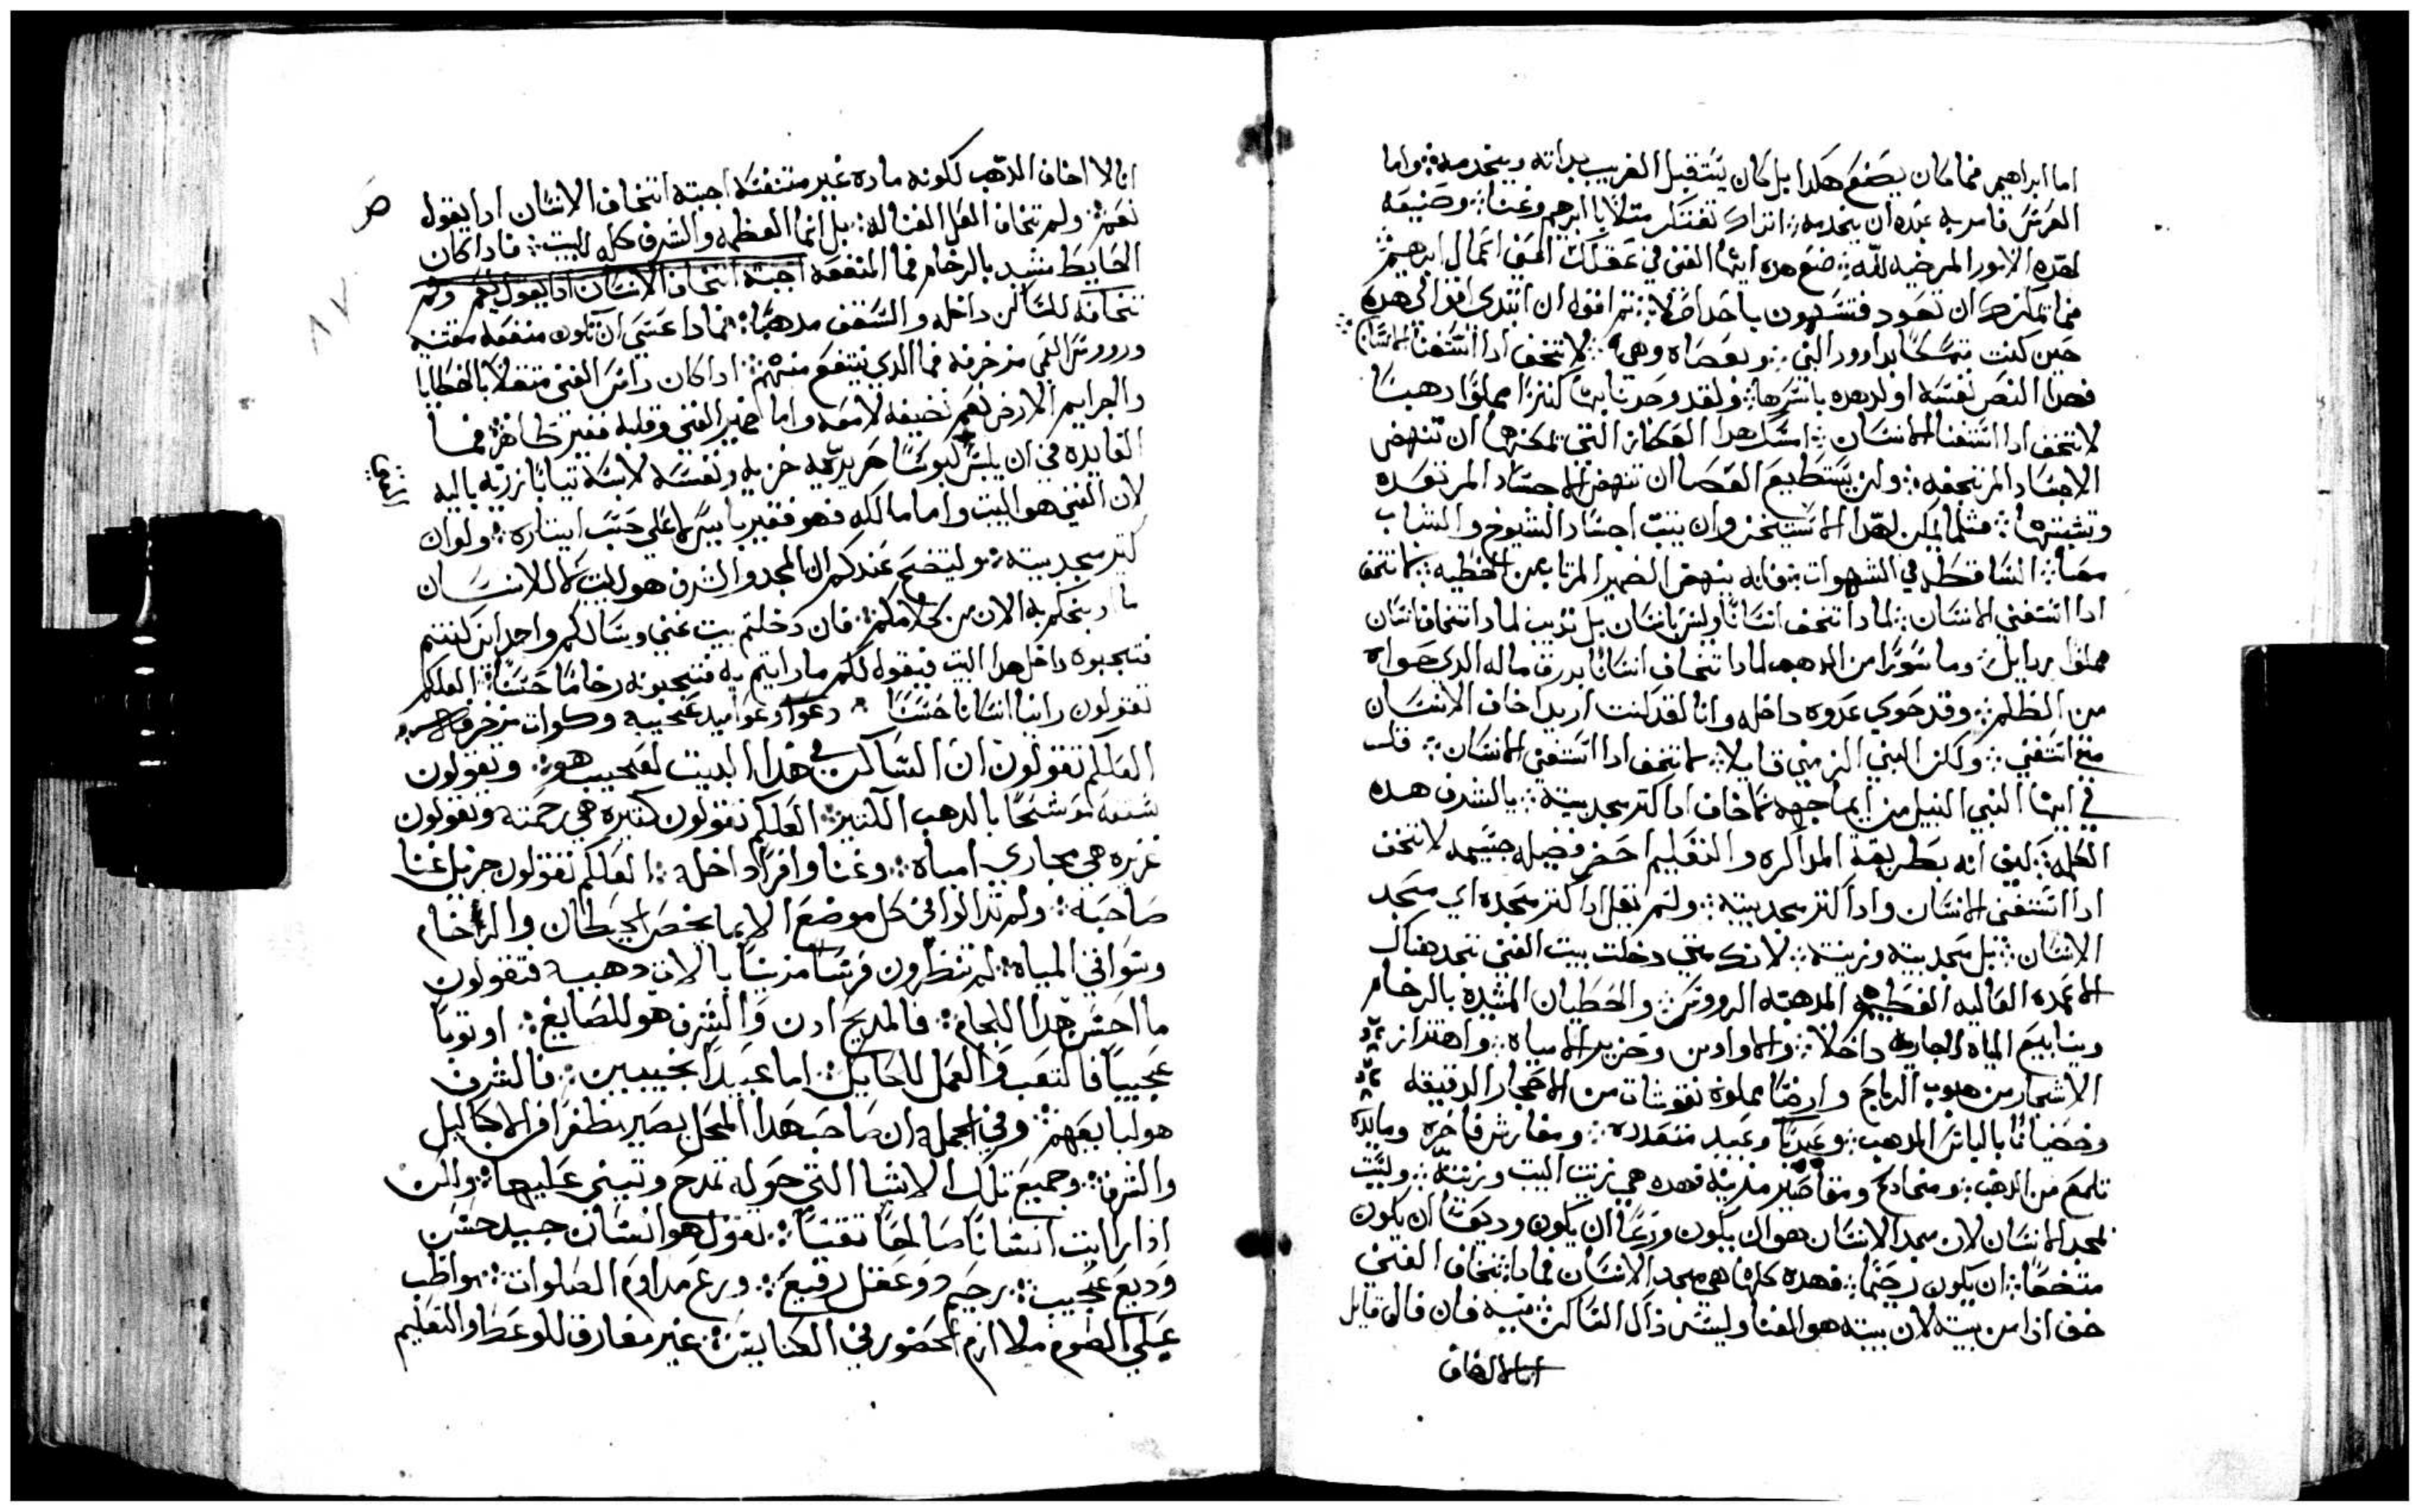 اما ابراهيم فما كان يصنع هكدا بل كان يستقبل الغريب بداته ويخدمه ܀ واما
الغرس فامر به عبده ان يخدمه ܀ اتراك تفتكر مثلا بابراهيم وغناه ܀ وصنيعه
لهده الامور المرضيه لله ܀ ضع هده ايها الغني في عقلك اعني اعمال ابرهيم ܀
فما يمكنك ان تعود فتسهون باحد اصلا ܀ ثم اقول ان ابتدى اقوالي هده
حين كنت متمسكا بداوود النبي ܀ وبعصاه وهي ܀ لا تخف ادا استغنا الانسان ܀
فهدا النص نفسه اولد هده باسرها ܀ ولقد وجدنا بها كنزا مملوا دهبا
لا تخف ادا استغنا الانسان ܀ امسك هدا العكاز التي يمكنها ان تنهض
الاجساد المرتجفه ܀ ولن يستطيع العصا ان تنهض الاجساد المرتعده
وتثبتها ܀ مثلما يمكن لهدا الاستيخن وان يثبت اجساد الشيوخ والشباب
معا ܀ الساقطه في الشهوات ܀ فانه ينهض الضمير المرتاع من الخطيه ܀ لا تخف
ادا استغني الانسان ܀ لمادا تخف انسانا وليس بانسان بل ديب لمادا تخاف انسان
مملوا بردايل ܀ وما سورا من الدهب لمادا تخاف انسانا بدرق ماله الدي حواه
من الظلم ܀ وقد حوي عدوه داخله وانا لقد كنت اريد اخاف الانسان
متي استغني ܀ ولكن النبي الزمني قايلا ܀ لا تخف ادا استغني الانسان ܀ قلت
في ايها النبي النبيل من ايما جهه لا اخاف ادا كتر مجد بيته ܀ يالشرف هده
الكلمه ܀ كيف انه بطريقه المداكره والتعليم احضر فضيله جسيمه لا تخف
ادا استغني الانسان وادا كتر مجد بيته ܀ ولم نقل ادا كتر مجده اي مجد
الانسان ܀ بل مجد بيته وزينته ܀ لانك متي دخلت بيت الغني تجد هناك
الاعمده العاليه العظيمه المدهبه الرووس ܀ والحطيان المشيدة بالرخام
وينابيع المياه الجاريه داخلا ܀ والاوادين وخرير المياه ܀ واهتزاز
الاشجار من هبوب الرياح وارضا مملوة نقوشات من الاحجار الدقيقه
وخصيانا بالباس المدهب ܀ وعبيدا وعبيد متعدده ܀ ومفارش فاخره ومايدة
تلمع من الدهب ܀ ومخادع ومقاصير مزينه فهده هي زينت البيت وزينته ܀ وليست
لمجد الانسان لان مجد الانسان هو ان يكون ورعا ان يكون وديعا ان يكون
متخضعا ܀ ان يكون رحيما ܀ فهده كلها هي مجد الانسان فمادا تخاف الغني
خف ادا من بيته لان بيته هو الغنا وليس داك الساكن فيه فان قال قايل
انا لا اخاف
انا لا اخاف الدهب لكونه ماده غير متنفسه اجبته اتخاف الانسان ادا يقول
نعم ܀ ولم تخاف الفعل الفعاله ܀ بل انما العظمه والشرف كله للبيت ܀ فادا كان
الحايط مشيد بالرخام فما المنفعه
تخافه للساكن داخله والسقف مدهبا ܀ فمادا عسي ان تكون منفعه مقتنيه
ورووس العمد مزخرفه فما الدي ينتفع منهم ܀ ادا كان راس الغني متقلا بالخطايا
والجرايم الارض نعم نضيفه لامعه واما ضمير الغني وقلبه فقير ظاهر ܀ فما
الفايده في ان يلبس لبوسا حريريه خزيه ونفسه لابسة تيابا رزيه باليه
لان الغني هو البيت واما مالكه فهو فقير بايس ܀ ولو ان
كتر مجد بيته ܀ وليتضح عندكم ان المجد والشرف هو للبيت لا للانسان
ما اوبخكم به الان من كلامكم ܀ فان دخلتم بيت غني وسالكم واحد اين كنتم
فتجيبوه داخل هدا البيت فيقول لكم مادا رايتم به فتجيبونه رخاما حسنا ܀ العلكم
تقولون راينا انسانا حسنا ܀ وعواميد عجيبه وكوات مزخرفه
العلكم تقولون ان الساكن في هدا البيت لعجيب هو ܀ وتقولون
سقفه موشحا بالدهب الكتير ܀ العلكم تقولون كتيره هي رحمته وتقولون
غزيره هي مجاري امياه ܀ وغنا وافرا داخله ܀ العلكم تقولون جزيل غنا
صاحبه ܀ ولم تدالوا في كل موضع الا بما يخص الحيطان والرخام
وسواقي المياه ܀ لم تنظرون فرسا مزينا بالالات دهبيه فتقولون
ما احسن هدا اللجام ܀ فالمديح ادن والشرف هو للصايغ ܀ او توبا
عجيبا فالتعب والعمل للحايك ܀ اما عبيدا عجيبين ܀ فالشرف
هو لبايعهم ܀ وفي الجمله ان صاحب هدا المحل يصير بظفرا في الاكاليل
والشرف ܀ وجميع تلك الاشيا التي حوله تمدح وتتني عليها ܀ ولكن
ادا رايت انسانا صالحا تقيا ܀ تقول هو انسان جيد حسن
وديع عجيب ܀ رحيم دو عقل رفيع ܀ ورع مداوم الصلوات ܀ مواظب
علي الصوم ملازم الحضور في الكنايس ܀ غير مفارق للوعظ والتعليم